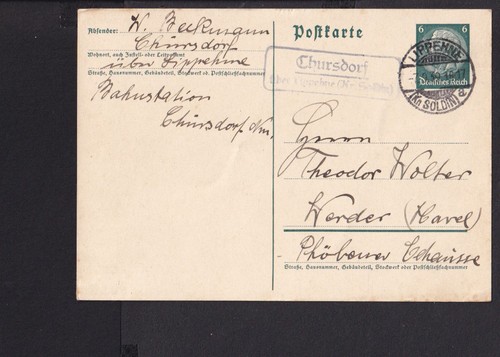 Absender: W. Beckmann
Chursdorf
Wohnort, auch Zustell- oder Leitpostamt
über Lippehne
Straße, Hausnummer, Gebäudeteil, Stockwerk od. Postschließfachnummer
Bahnstation
Chursdorf Nm.
Postkarte
Chursdorf
über Lippehne (Kr. Soldin)
LIPPEHNE
(Kr. SOLDIN)
6 6
Deutsches Reich
Herrn
Theodor Wolter
Werder (Havel)
Phöbener Chaussee
Straße, Hausnummer, Gebäudeteil, Stockwerk oder Postschließfachnummer